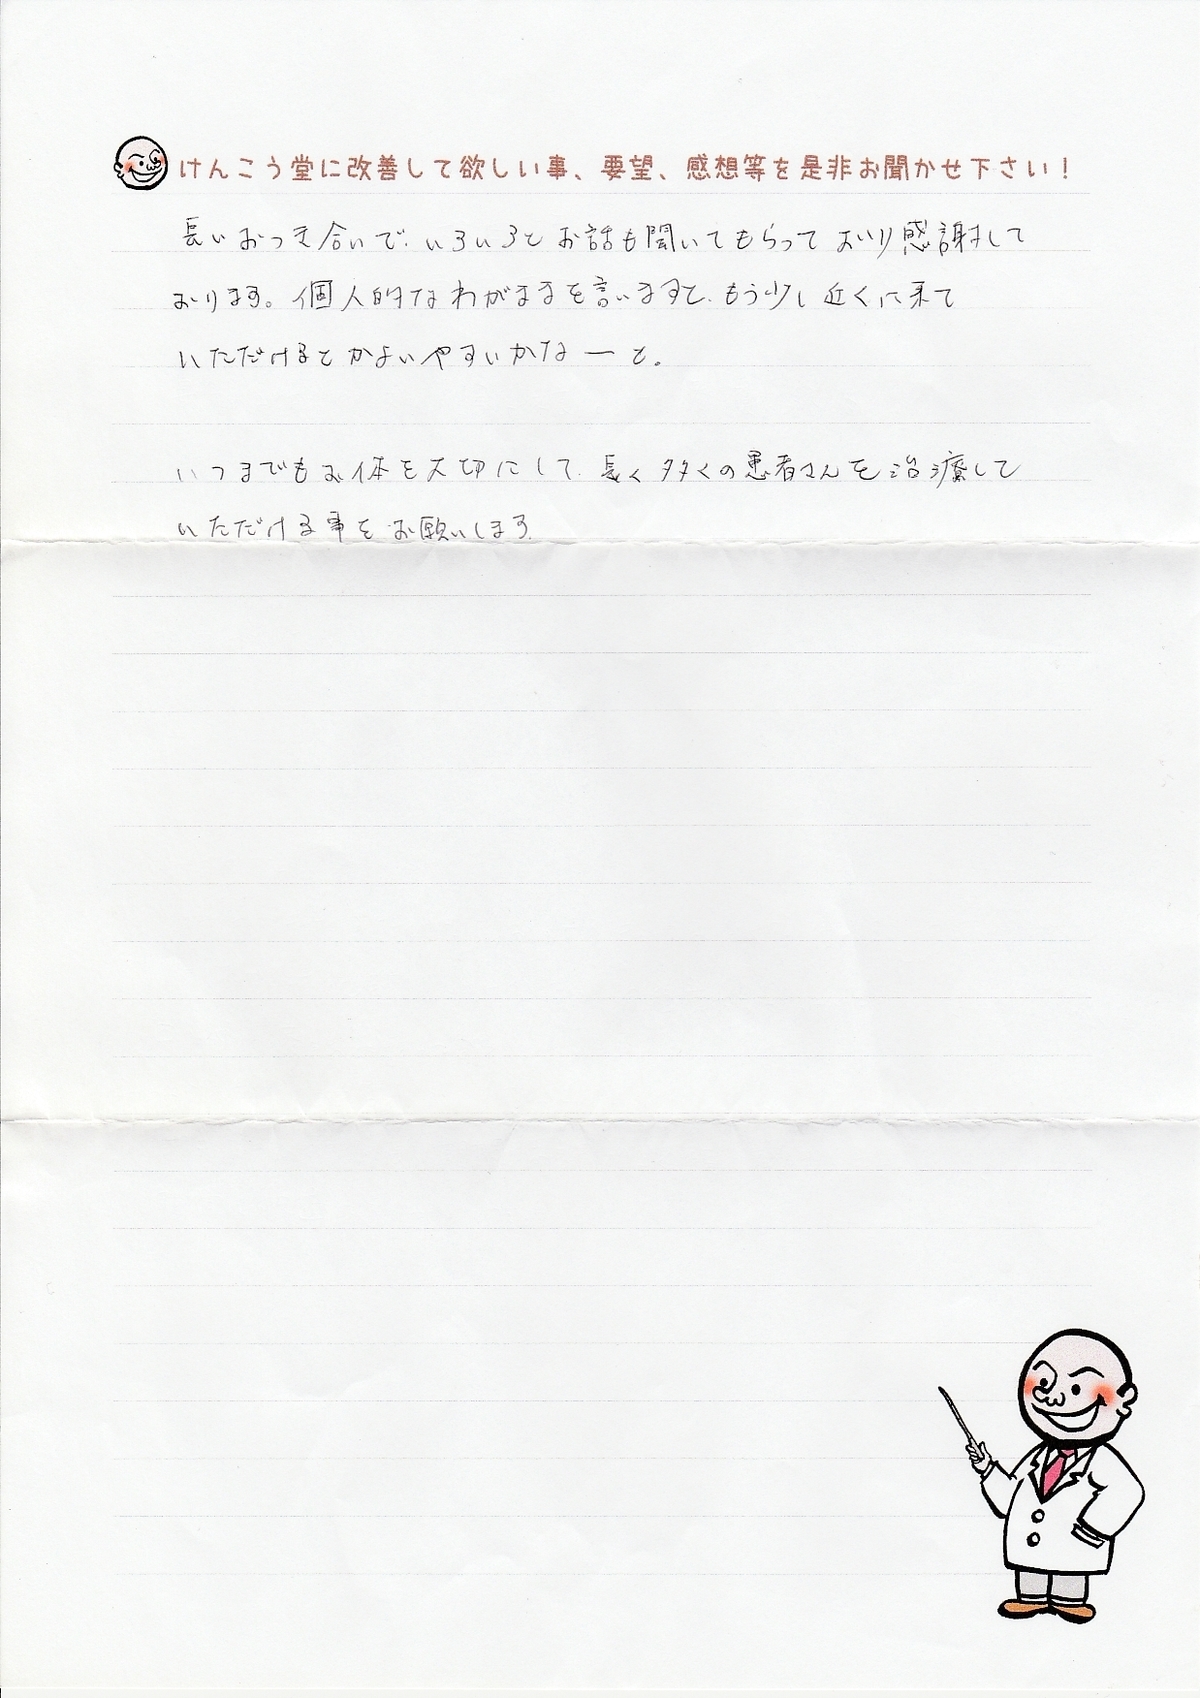 けんこう堂に改善して欲しい事、要望、感想等を是非お聞かせ下さい！
長いおつき合いで、いろいろとお話も聞いてもらっており感謝して
おります。個人的なわがままを言いますと、もう少し近くに来て
いただけるとかよいやすいかなーと。
いつまでもお体を大切にして、長く多くの患者さんを治療して
いただける事をお願いします。